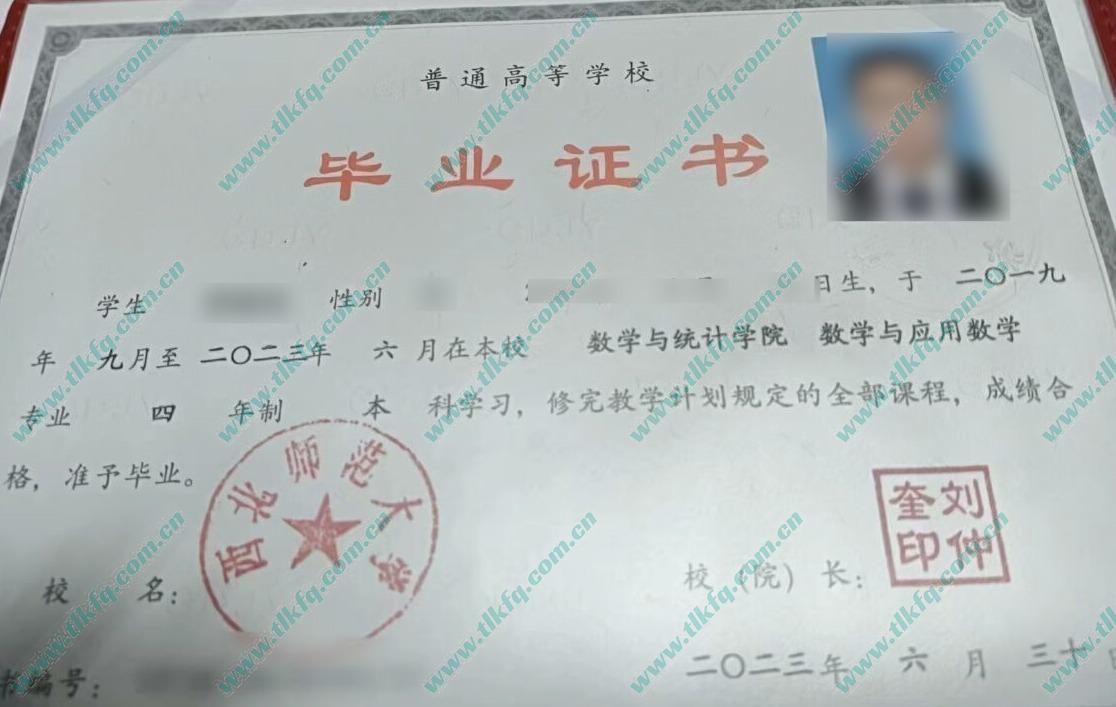 普通高等学校
毕业证书
学生 性别 日生，于 二〇一九
年 九月至 二〇二三年 六 月在本校 数学与统计学院 数学与应用数学
专业 四 年制 本 科学习，修完教学计划规定的全部课程，成绩合
格，准予毕业。
西北师范大学
校 名：
校（院）长：
刘仲奎印
书编号：
二〇二三年 六 月 三十日
www.tlkfq.com.cn